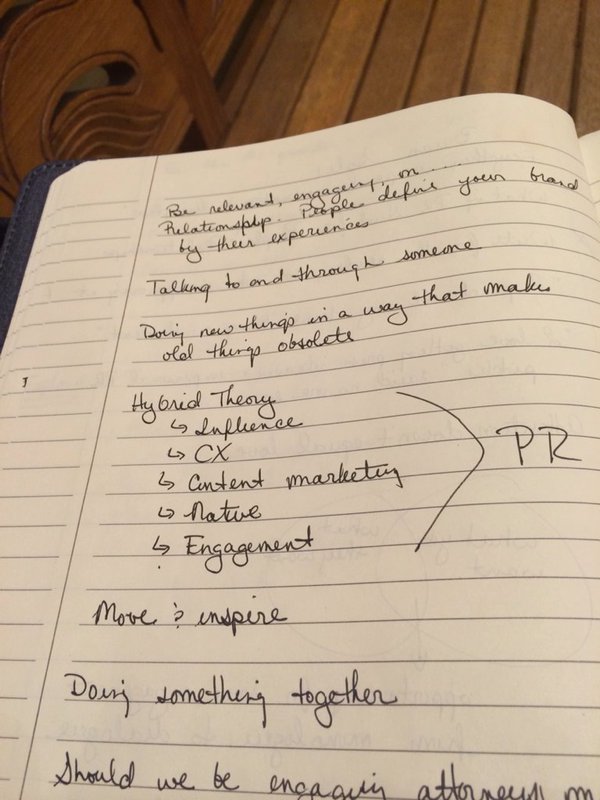 Be relevant, engaging, or ....
Relationship. People define your brand
by their experiences
Talking to and through someone
Doing new things in a way that makes
old things obsolete
Hybrid Theory
↳ Influence
↳ CX
↳ Content marketing
↳ Native
↳ Engagement
PR
Move & inspire
Doing something together
Should we be engaging attorneys